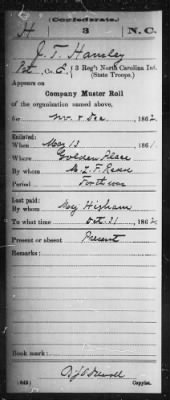 (Confederate.)
H 3 N.C.
J. T. Hansley
Pvt, Co. G, 3 Reg't North Carolina Inf.
(State Troops.)
Appears on
Company Muster Roll
of the organization named above,
for Nov & Dec, 1862.
Enlisted:
When May 13, 1861.
Where Golden Place
By whom
Period For the war
Last paid:
By whom Maj Hisham
To what time Oct 31, 1862.
Present or absent Present
Remarks:
Book mark:
(642) Copyist.